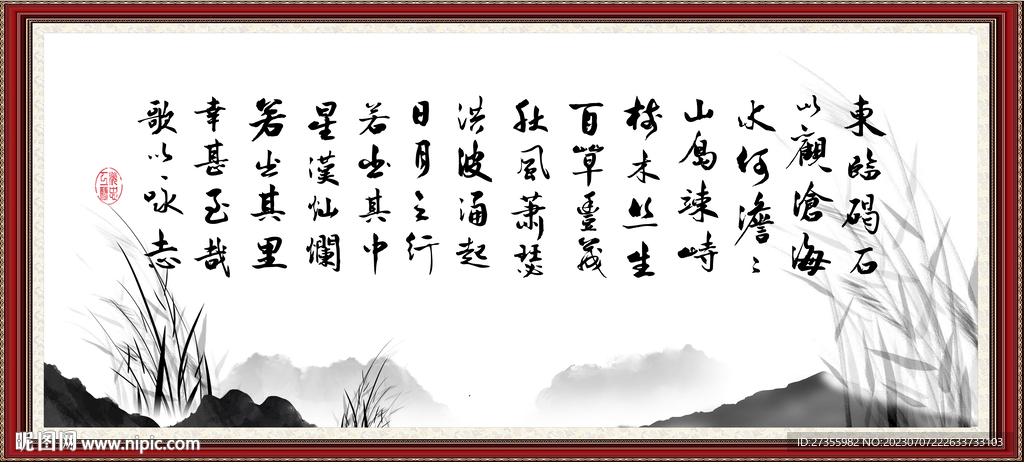 東臨碣石
以觀滄海
水何澹〻
山島竦峙
樹木丛生
百草豐茂
秋風蕭瑟
洪波涌起
日月之行
若出其中
星漢灿爛
若出其里
幸甚至哉
歌以咏志
昵图网 www.nipic.com
ID:27355982 NO:20230707222633733103